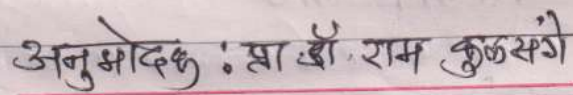 अनुमोदक : प्रा.डॉ. राम कुळसंगे